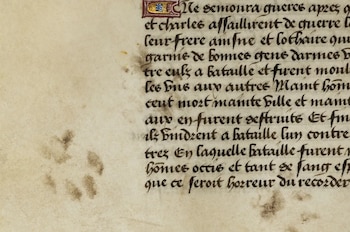 Ne demoura gueres apres q
et charles assaillirent de guerre l
leur frere aisne et lothaire que
garnis de bonnes gens darmes v
tre eulz a bataille et furent moul
les vns aux autres Maint hom̄
ceut mort mainte ville et maint
aux en furent destruits Et fin
ilz vindrent a bataille lun contre
trez En laquelle bataille furent
hōmes occis et tant de sang esp
que ce seroit horreur du recorder